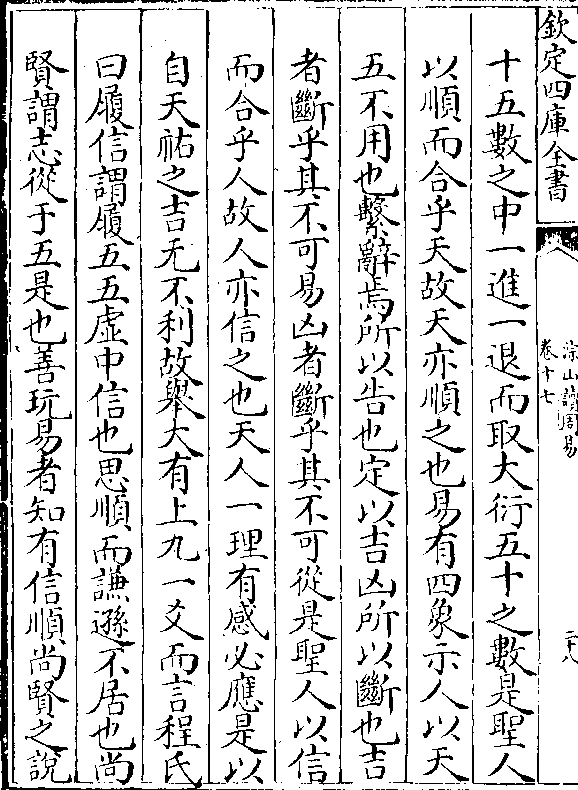 欽定四庫全書
涂山讀周易
卷十七
二十八
十五數之中一進一退而取大衍五十之數是聖人
以順而合乎天故天亦順之也易有四象示人以天
五不用也繫辭焉所以告也定以吉凶所以斷也吉
者斷乎其不可易凶者斷乎其不可從是聖人以信
而合乎人故人亦信之也天人一理有感必應是以
自天祐之吉无不利故舉大有上九一爻而言程氏
曰履信謂履五五虚中信也思順而謙遜不居也尚
賢謂志從于五是也善玩易者知有信順尚賢之說